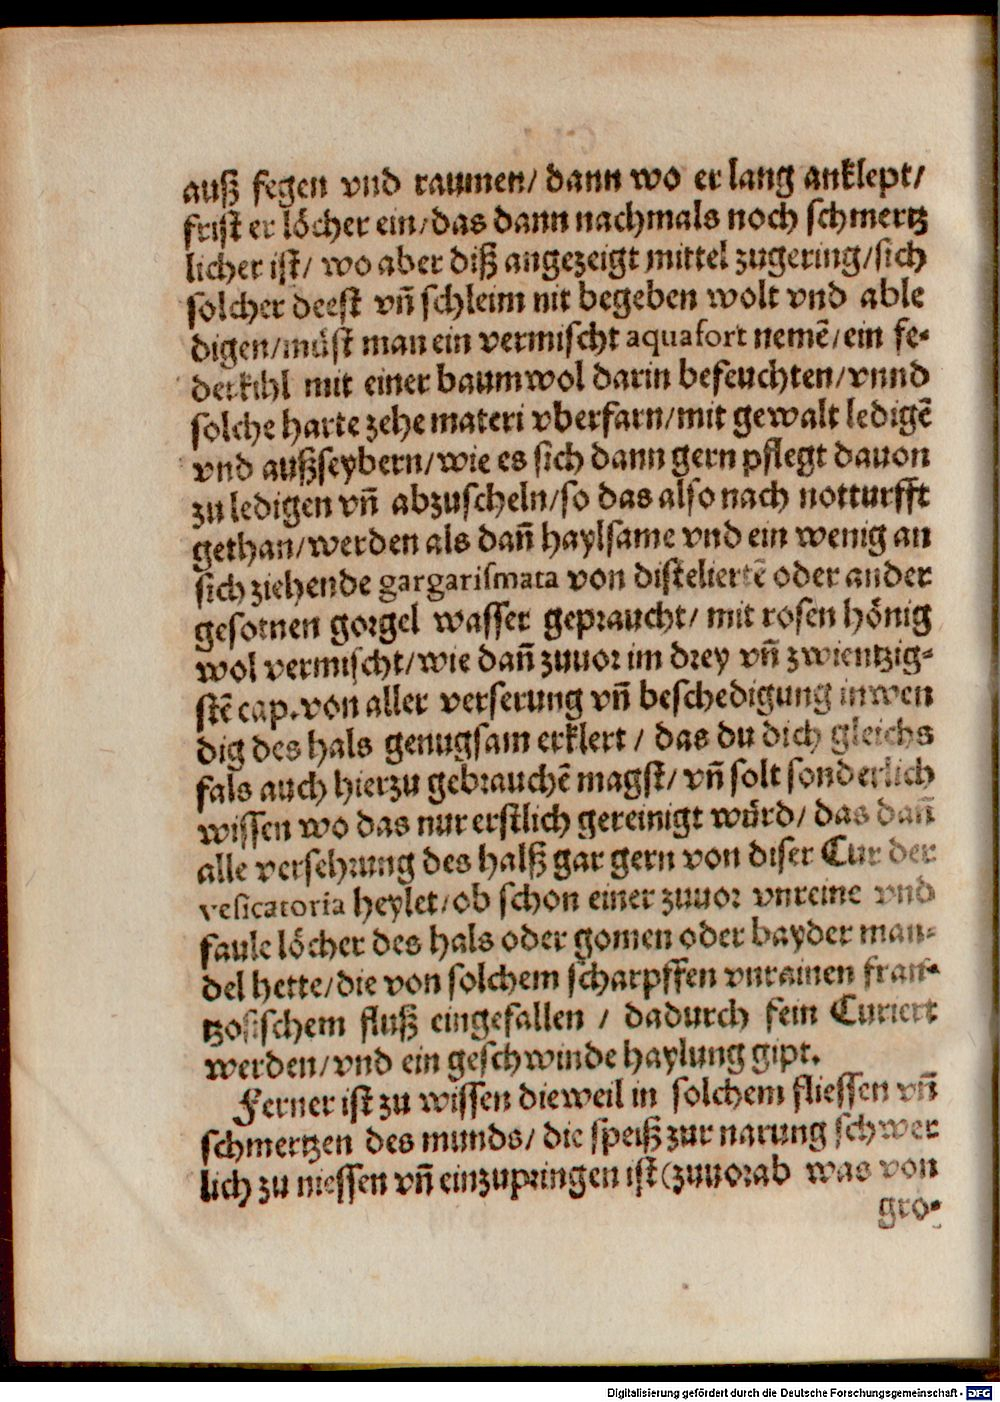 auß fegen vnd raumen/ dann wo er lang anklept/
frist er löcher ein/das dann nachmals noch schmertz
licher ist/ wo aber diß angezeigt mittel zugering/sich
solcher deest vñ schleim nit begeben wolt vnd able
digen/müst man ein vermischt aquafort nemẽ/ein fe-
derkihl mit einer baumwol darin befeuchten/vnnd
solche harte zehe materi vberfarn/mit gewalt ledigẽ
vnd außseybern/wie es sich dann gern pflegt dauon
zu ledigen vñ abzuscheln/so das also nach notturfft
gethan/werden als dañ haylsame vnd ein wenig an
sich ziehende gargarismata von disteliertẽ oder ander
gesotnen gorgel wasser gepraucht/ mit rosen hönig
wol vermischt/wie dañ zuuor im drey vñ zwientzig-
stẽ cap. von aller verserung vñ beschedigung inwen
dig des hals genugsam erklert / das du dich gleichs
fals auch hierzu gebrauchẽ magst/ vñ solt sonderlich
wissen wo das nur erstlich gereinigt würd/ das dañ
alle versehrung des halß gar gern von diser Cur der
vesicatoria heylet/ob schon einer zuuor vnreine vnd
faule löcher des hals oder gomen oder bayder man-
del hette/die von solchem scharpffen vnrainen fran-
tzosischem fluß eingefallen / dadurch fein Curiert
werden/vnd ein geschwinde haylung gipt.
Ferner ist zu wissen dieweil in solchem fliessen vñ
schmertzen des munds/ die speiß zur narung schwer
lich zu niessen vñ einzupringen ist(zuuorab was von
gro-
Digitalisierung gefördert durch die Deutsche Forschungsgemeinschaft - DFG